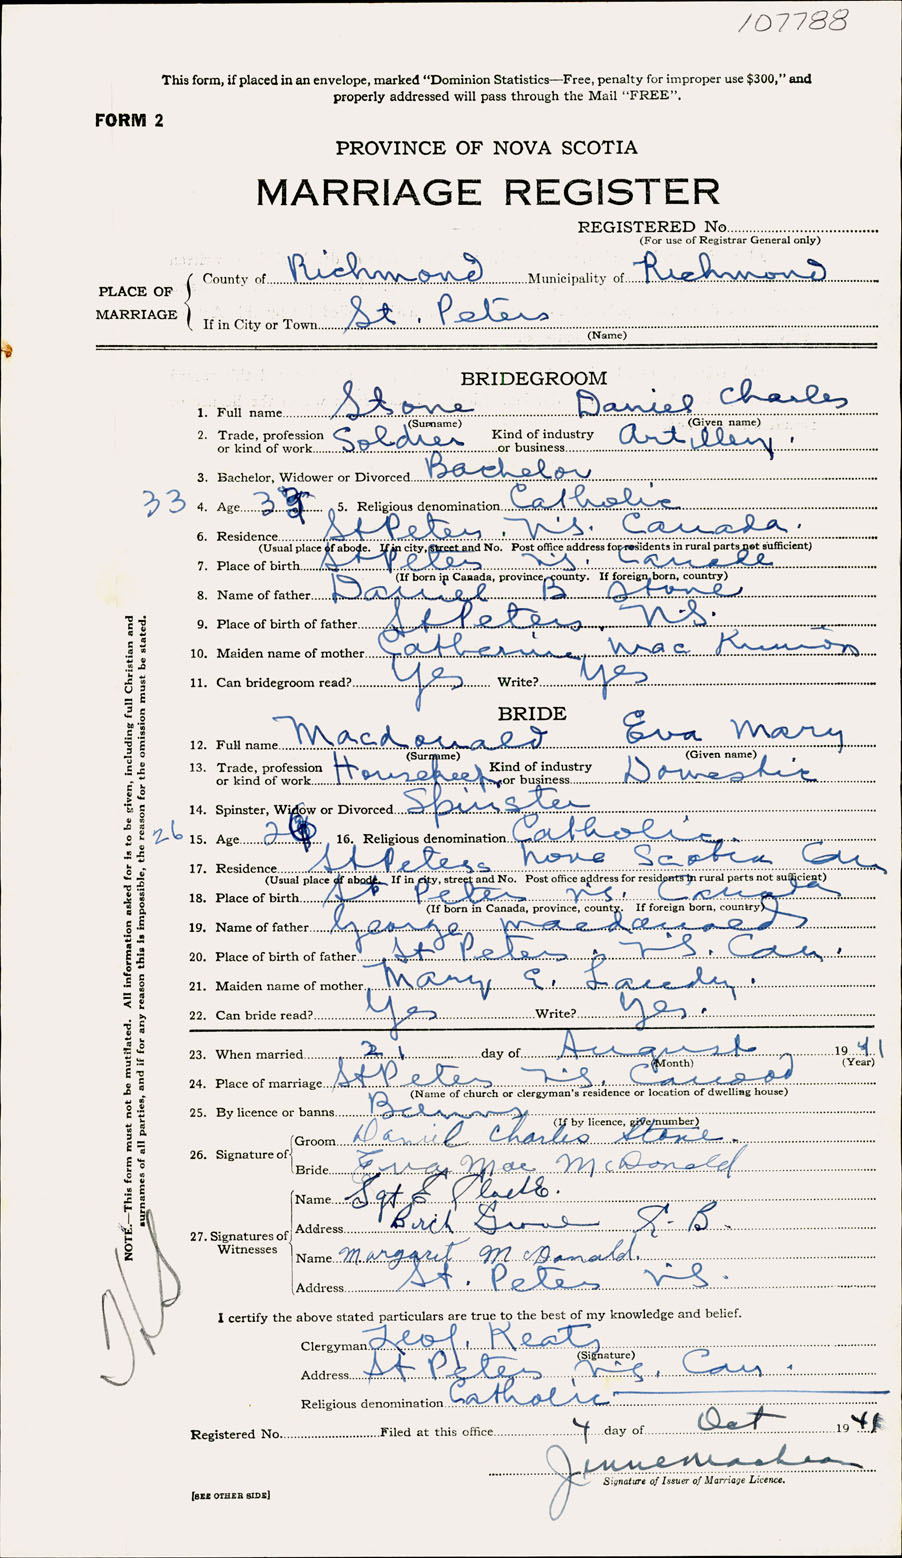 107788
This form, if placed in an envelope, marked "Dominion Statistics—Free, penalty for improper use $300," and
properly addressed will pass through the Mail "FREE".
FORM 2
PROVINCE OF NOVA SCOTIA
MARRIAGE REGISTER
REGISTERED No.
(For use of Registrar General only)
PLACE OF MARRIAGE
County of Richmond Municipality of Richmond
If in City or Town St. Peters
(Name)
BRIDEGROOM
1. Full name Stone Daniel Charles
(Surname) (Given name)
2. Trade, profession or kind of work Soldier Kind of industry or business Artillery.
3. Bachelor, Widower or Divorced Bachelor
33 4. Age 33 5. Religious denomination Catholic
6. Residence St Peters, N.S. Canada.
(Usual place of abode. If in city, street and No. Post office address for residents in rural parts not sufficient)
7. Place of birth St Peters N.S. Canada
(If born in Canada, province, county. If foreign born, country)
8. Name of father Daniel B Stone
9. Place of birth of father St Peters, N.S.
10. Maiden name of mother Catherine Mac
11. Can bridegroom read? Yes Write? Yes
BRIDE
12. Full name Macdonald Eva Mary
(Surname) (Given name)
13. Trade, profession or kind of work Housekeeper Kind of industry or business Domestic
14. Spinster, Widow or Divorced Spinster
26 15. Age 26 16. Religious denomination Catholic.
17. Residence St Peters Nova Scotia Can
(Usual place of abode. If in city, street and No. Post office address for residents in rural parts not sufficient)
18. Place of birth St Peters N.S. Canada
(If born in Canada, province, county. If foreign born, country)
19. Name of father George Macdonald
20. Place of birth of father St Peters, N.S. Can.
21. Maiden name of mother Mary E. Landry.
22. Can bride read? Yes Write? Yes.
23. When married 21 day of August, 1941
(Month) (Year)
24. Place of marriage St Peters N.S. Canada
(Name of church or clergyman's residence or location of dwelling house)
25. By licence or banns Banns
(If by licence, give number)
26. Signature of
Groom Daniel Charles Stone.
Bride Eva Mae McDonald
27. Signatures of Witnesses
Name Sgt E
Address Birch Grove C.B.
Name Margaret McDonald.
Address St. Peters N.S.
I certify the above stated particulars are true to the best of my knowledge and belief.
Clergyman Leo J. Keats
(Signature)
Address St Peters N.S. Can.
Religious denomination Catholic
Registered No. Filed at this office 4 day of Oct 1941
Signature of Issuer of Marriage Licence.
[SEE OTHER SIDE]
NOTE.—This form must not be mutilated. All information asked for is to be given, including full Christian and
surnames of all parties, and if for any reason this is impossible, the reason for the omission must be stated.